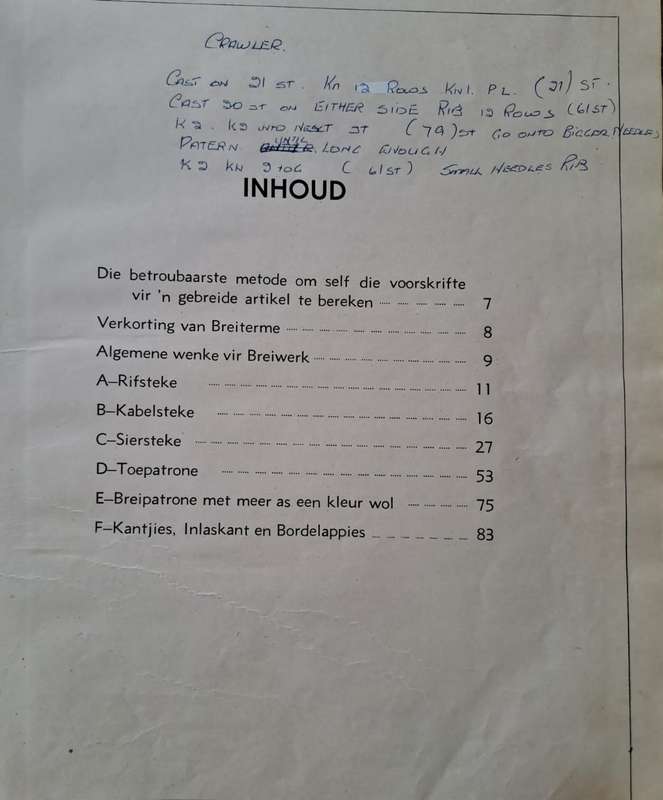 CRAWLER.
CAST ON 21 ST. KN 12 ROWS KN1. P.L. (21) ST.
CAST 20 ST ON EITHER SIDE RIB 12 ROWS (61ST)
K2. K2 INTO NEXT ST (79) ST GO ONTO BIGGER NEEDLES,
PATERN UNTIL LONG ENOUGH
K2 KN 2 TOG (61ST) SMALL NEEDLES RIB
INHOUD
Die betroubaarste metode om self die voorskrifte
vir 'n gebreide artikel te bereken 7
Verkorting van Breiterme 8
Algemene wenke vir Breiwerk 9
A—Rifsteke 11
B—Kabelsteke 16
C—Siersteke 27
D—Toepatrone 53
E—Breipatrone met meer as een kleur wol 75
F—Kantjies, Inlaskant en Bordelappies 83